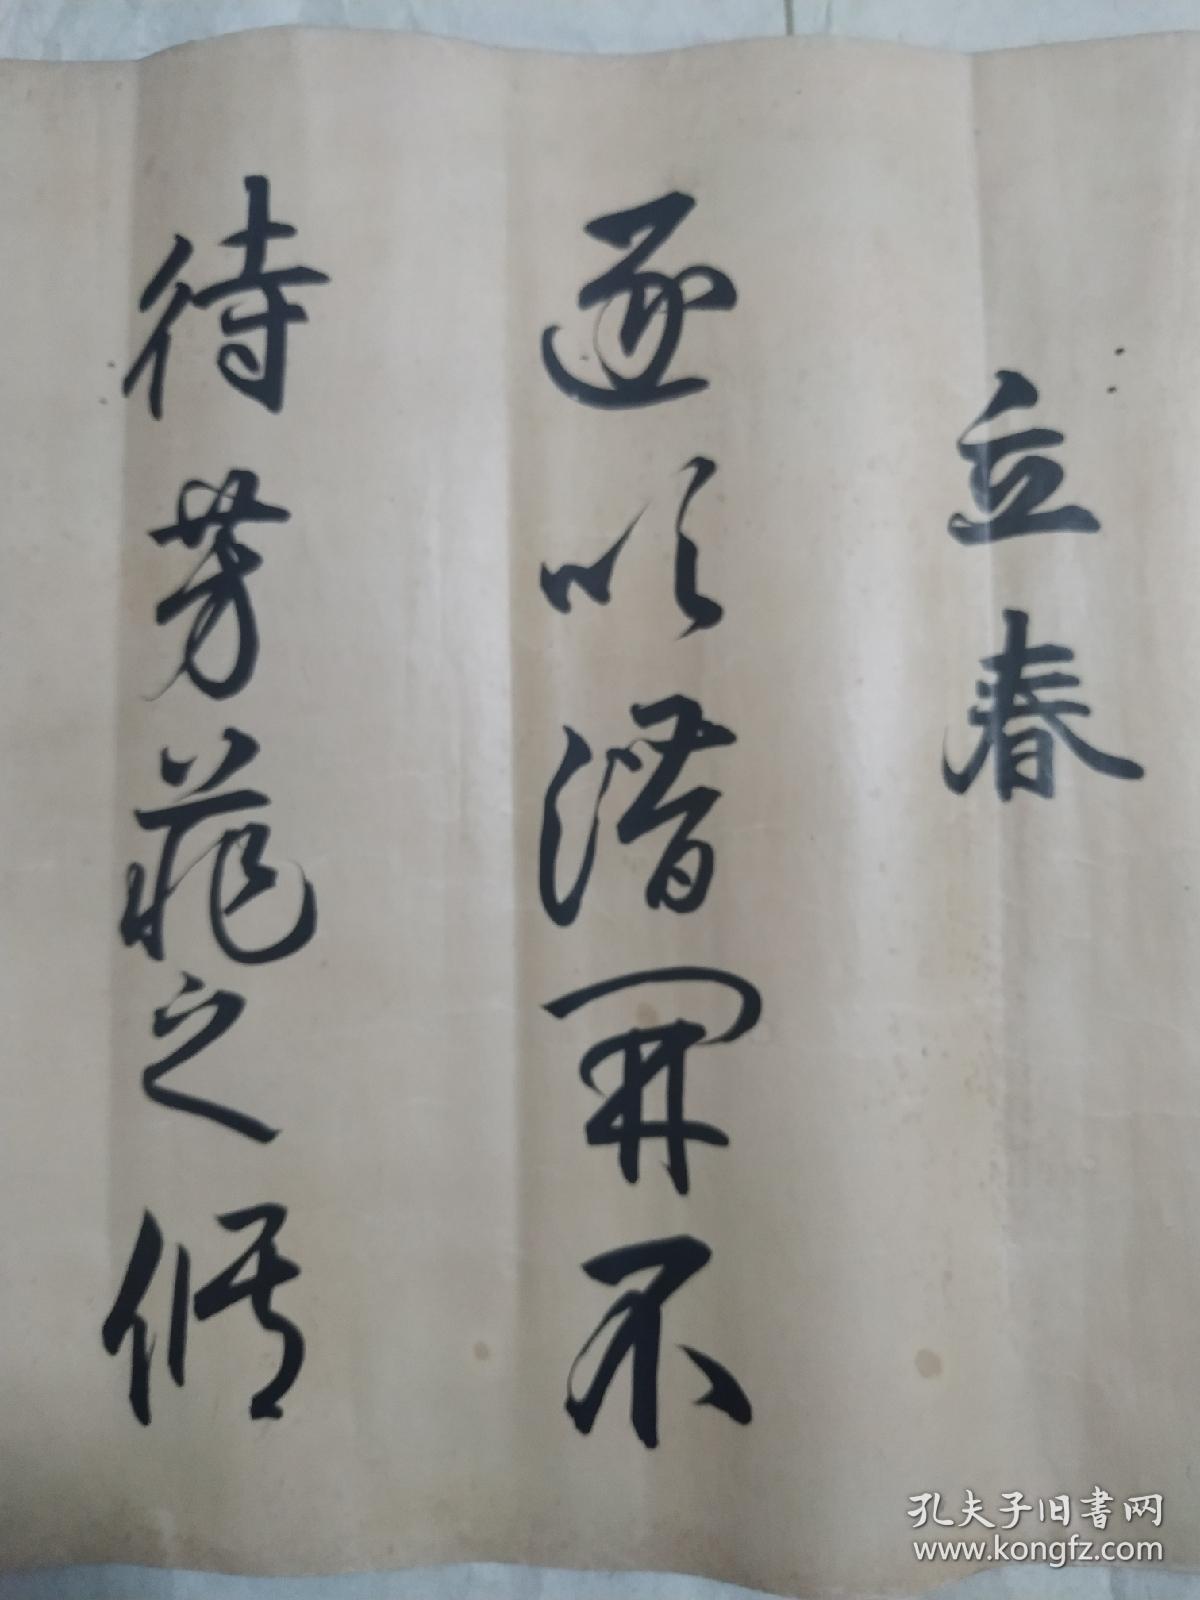 立春
逐吹潜開不
待芳菲之候
孔夫子旧书网
www.kongfz.com